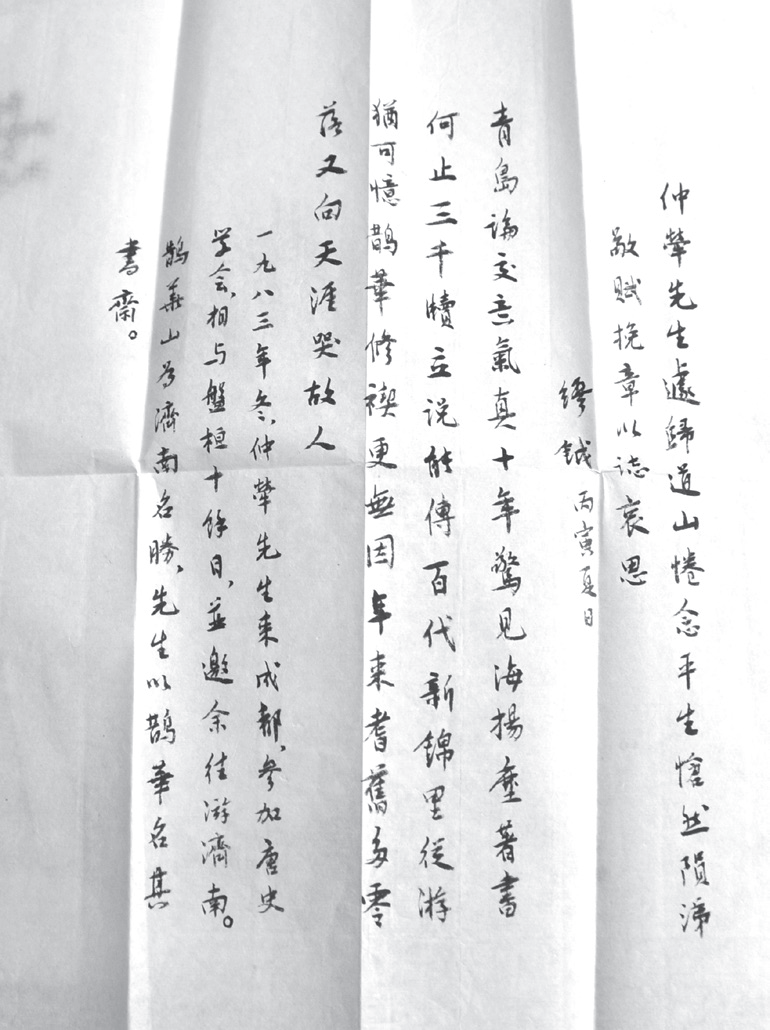 仲犖先生遽歸道山惓念平生愴然隕涕
敬賦挽章以誌哀思
繆鉞 丙寅夏日
青島論交意氣真十年驚見海揚塵著書
何止三千牘立说能傳百代新錦里從游
猶可憶鵲華修禊更無因年來耆舊多零
落又向天涯哭故人
一九八三年冬,仲犖先生来成都,參加唐史
学会,相与盤桓十餘日,並邀余往游濟南。
鵲華山为濟南名勝,先生以鵲華名其
書齋。